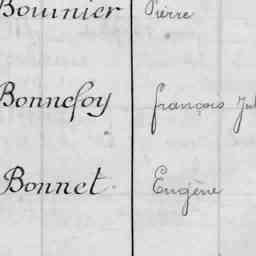 Bouinier Pierre
Bonnefoy François
Bonnet Eugène